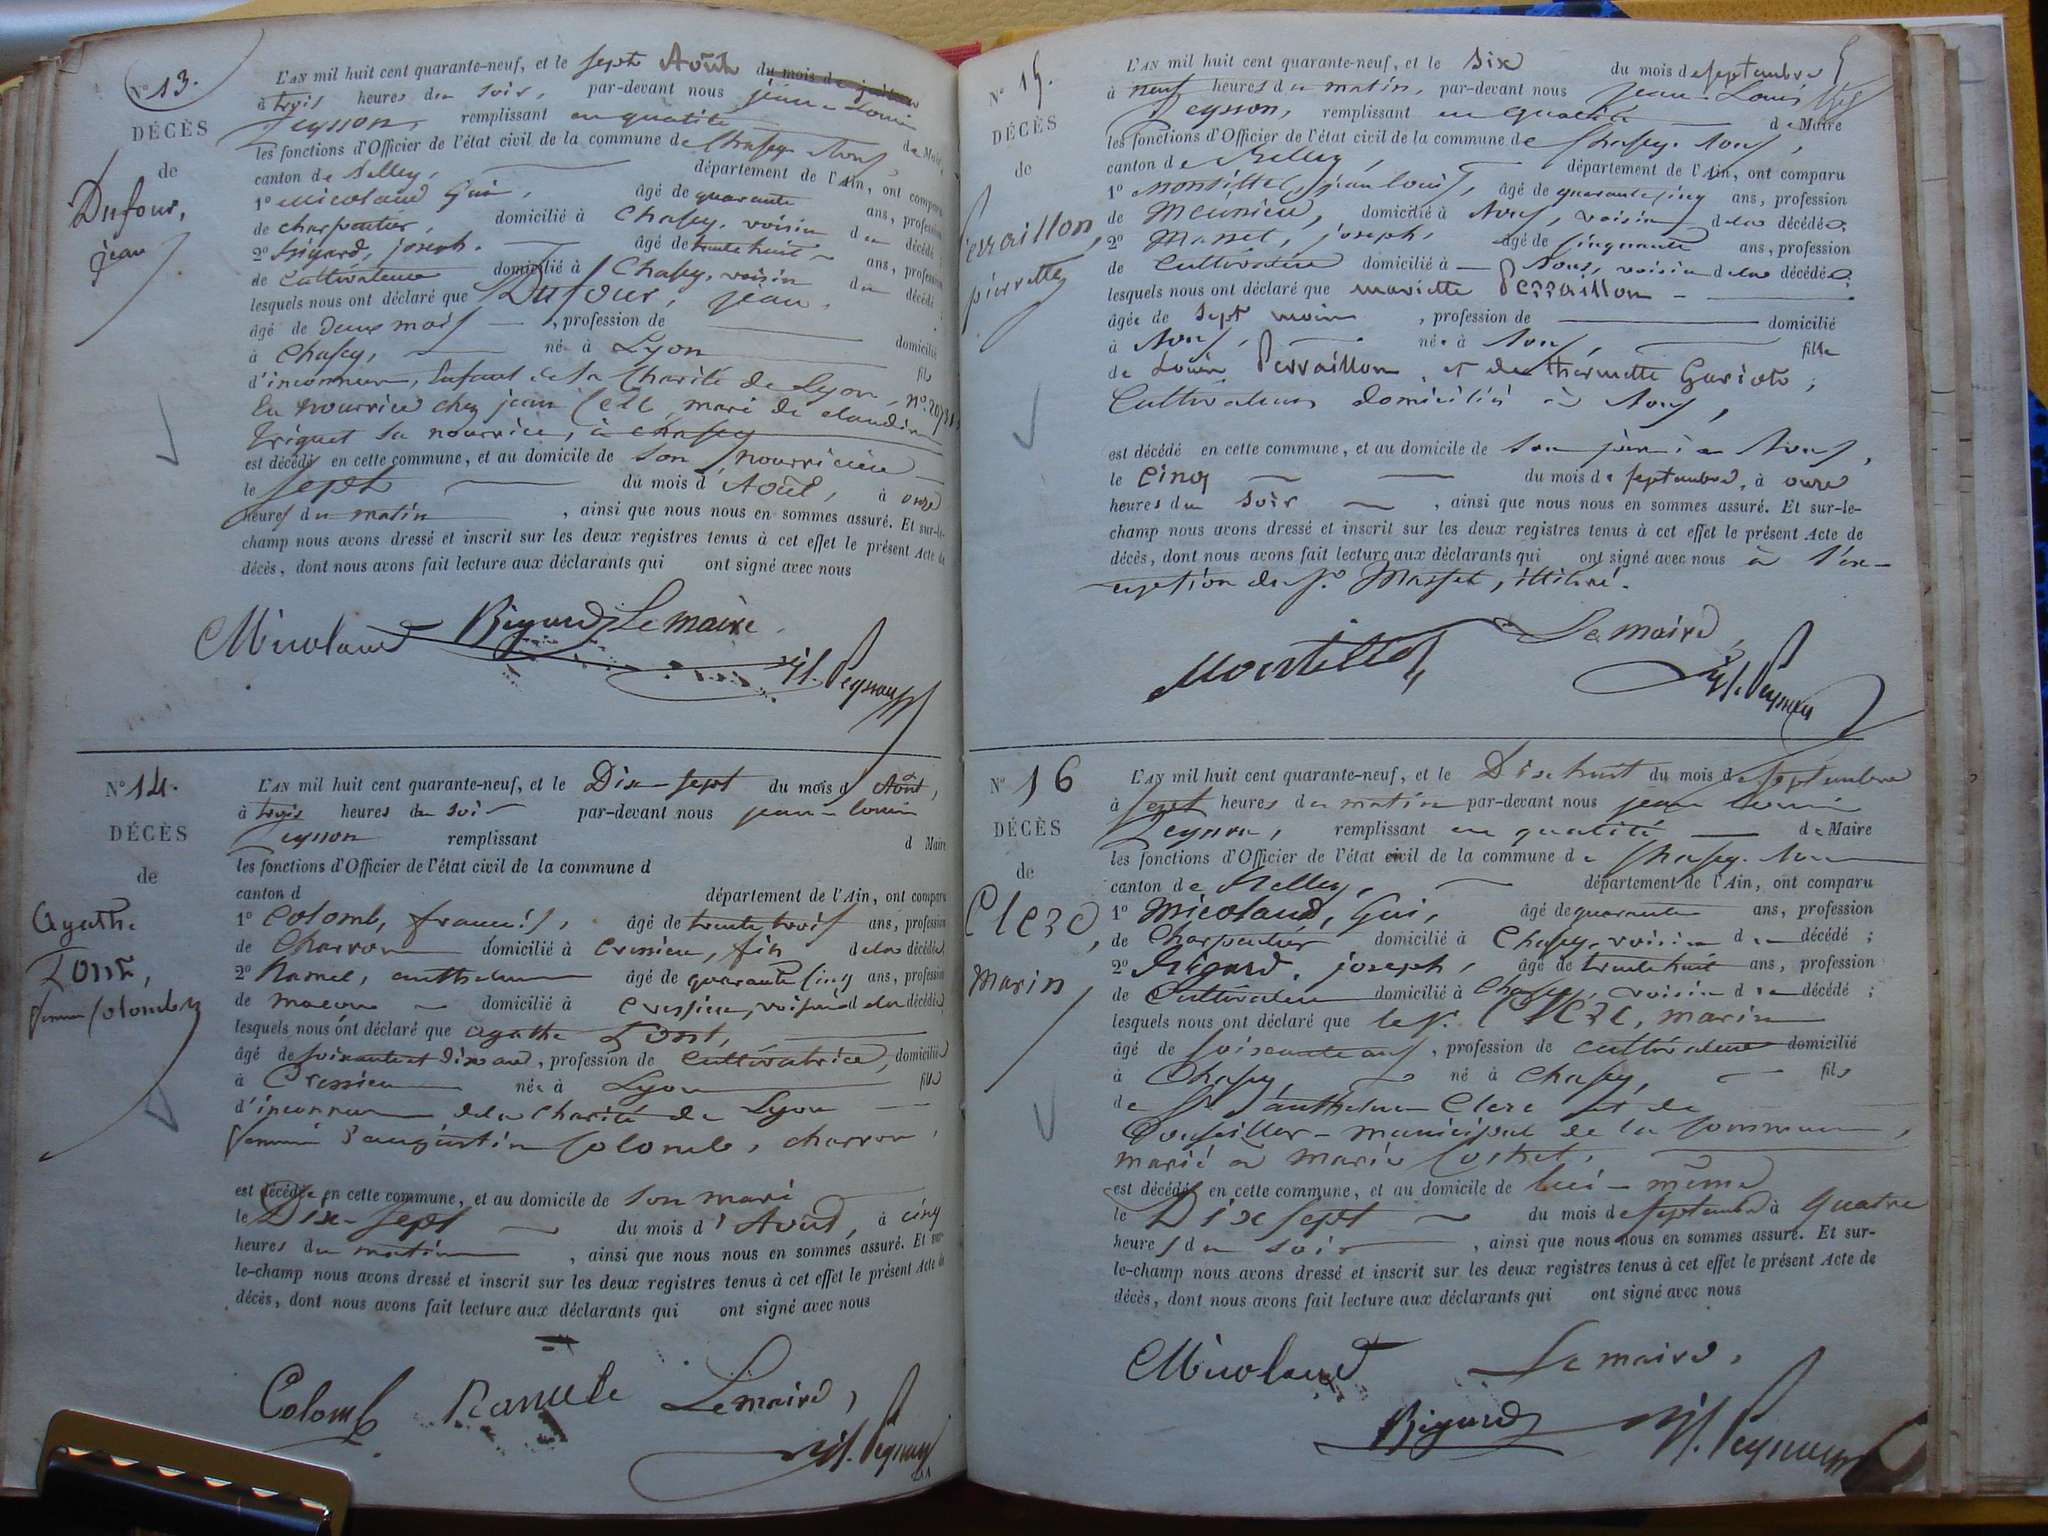 N° 13.
DÉCÈS
de
Dufour,
jean
L'AN mil huit cent quarante-neuf, et le sept Août du mois de
à trois heures du soir, par-devant nous jean-Louis
Peysson, remplissant en qualité de Maire
les fonctions d'Officier de l'état civil de la commune de Chasey-Bons,
canton de Belley, département de l'Ain, ont comparu
1° Micoland Gui, âgé de quarante ans, profession
de charpentier, domicilié à Chasey, voisin du décédé ;
2° Bigard, joseph. âgé de trente huit ans, profession
de Cultivateur domicilié à Chasey, voisin du décédé ;
lesquels nous ont déclaré que Dufour, jean,
âgé de deux mois, profession de domicilié
à Chasey, né à Lyon fils
d'inconnu, Enfant de la Charité de Lyon, n°
En nourrice chez jean mari de claudine
Triquet sa nourrice, à chasey
est décédé en cette commune, et au domicile de son nourricier
le sept du mois d'Août, à onze
heures du matin, ainsi que nous nous en sommes assuré. Et sur-le-
champ nous avons dressé et inscrit sur les deux registres tenus à cet effet le présent Acte de
décès, dont nous avons fait lecture aux déclarants qui ont signé avec nous
Micoland Bigard Le maire
jl. Peysson
N° 14.
DÉCÈS
de
Agathe
Font,
femme Colomb
L'AN mil huit cent quarante-neuf, et le Dix-sept du mois d Août,
à trois heures du soir par-devant nous jean-louis
Peysson remplissant d Maire
les fonctions d'Officier de l'état civil de la commune d
canton d département de l'Ain, ont comparu
1° Colomb, francois, âgé de trente trois ans, profession
de Charron domicilié à Cressieu, fils de la décédée,
2° Ramel, anthelme âgé de quarante cinq ans, profession
de macon domicilié à Cressieu, voisin de la décédée,
lesquels nous ont déclaré que agathe Font,
âgé de soixante et Dix ans, profession de cultivatrice, domiciliée
à Cressieu née à Lyon fille
d'inconnu de la Charité de Lyon
femme d'augustin Colomb, charron,
est décédée en cette commune, et au domicile de son mari
le Dix-sept du mois d'Août, à cinq
heures du matin, ainsi que nous nous en sommes assuré. Et sur-
le-champ nous avons dressé et inscrit sur les deux registres tenus à cet effet le présent Acte de
décès, dont nous avons fait lecture aux déclarants qui ont signé avec nous
Colomb Ramel Le maire,
jl. Peysson
N° 15.
DÉCÈS
de
Perraillon,
pierrette
L'AN mil huit cent quarante-neuf, et le six du mois de septembre
à neuf heures du matin, par-devant nous jean-Louis
Peysson, remplissant en qualité de Maire
les fonctions d'Officier de l'état civil de la commune de Chasey-Bons,
canton de Belley, département de l'Ain, ont comparu
1° Montillet, jean louis, âgé de quarante cinq ans, profession
de Meunier, domicilié à Bons, voisin de la décédée.
2° Masset, joseph, âgé de cinquante ans, profession
de Cultivateur domicilié à Bons, voisin de la décédée ;
lesquels nous ont déclaré que mariette Perraillon
âgée de sept mois, profession de domicilié
à Bons, née à Bons, fille
de Louis Perraillon et de thermette Gariot ;
Cultivateurs domiciliés à Bons,
est décédé en cette commune, et au domicile de son père à Bons,
le cinq du mois de septembre, à onze
heures du soir, ainsi que nous nous en sommes assuré. Et sur-le-
champ nous avons dressé et inscrit sur les deux registres tenus à cet effet le présent Acte de
décès, dont nous avons fait lecture aux déclarants qui ont signé avec nous à l'ex-
ception du Sr Masset, illitéré.
Montillet Le maire,
jl. Peysson
N° 16
DÉCÈS
de
Clerc,
Marin
L'AN mil huit cent quarante-neuf, et le Dix huit du mois de septembre
à sept heures du matin par-devant nous jean louis
Peysson, remplissant en qualité de Maire
les fonctions d'Officier de l'état civil de la commune de Chasey-Bons
canton de Belley, département de l'Ain, ont comparu
1° Micoland, Gui, âgé de quarante ans, profession
de Charpentier domicilié à Chasey, voisin du décédé ;
2° Bigard, joseph, âgé de trente huit ans, profession
de Cultivateur domicilié à Chasey, voisin du décédé ;
lesquels nous ont déclaré que le Sr. Clerc, marin
âgé de soixante ans, profession de cultivateur domicilié
à Chasey, né à Chasey, fils
de Sr anthelme Clerc et de
Conseiller-municipal de la Commune,
marié à marie
est décédé en cette commune, et au domicile de lui-même
le Dix sept du mois de septembre à Quatre
heures du soir, ainsi que nous nous en sommes assuré. Et sur-
le-champ nous avons dressé et inscrit sur les deux registres tenus à cet effet le présent Acte de
décès, dont nous avons fait lecture aux déclarants qui ont signé avec nous
Micoland Le maire,
Bigard jl. Peysson